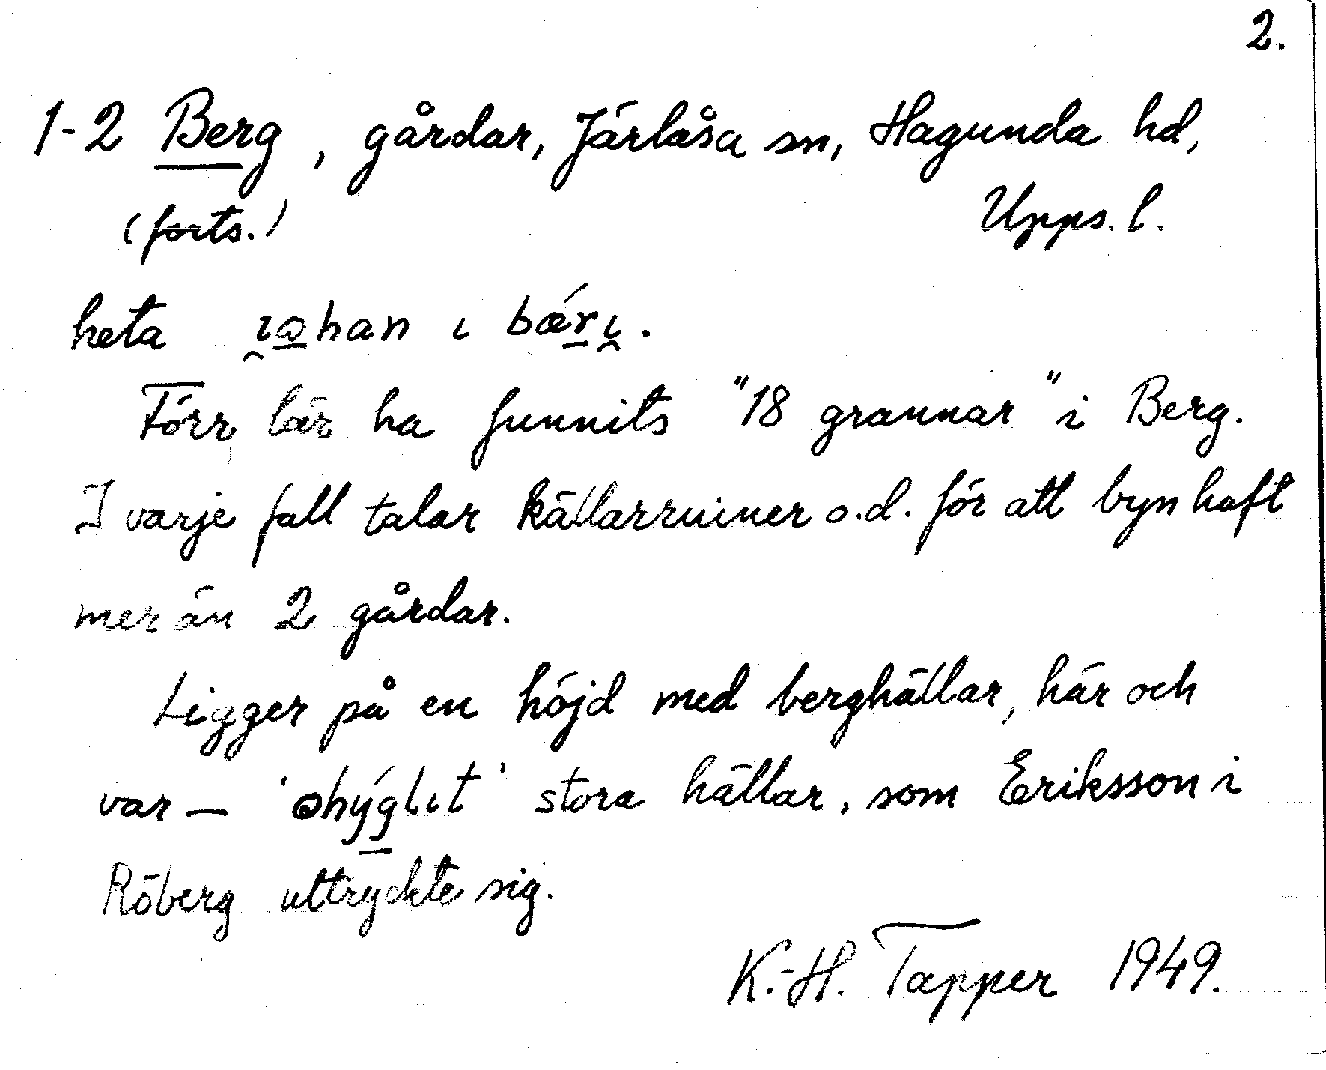 2.
1-2 Berg, gårdar, Järlåsa sn, Hagunda hd,
(forts.) Upps. l.
heta ı̯o̲han ı bǽr̲ı̯.
Förr lär ha funnits "18 grannar" i Berg.
I varje fall talar källarruiner o.d. för att byn haft
mer än 2 gårdar.
Ligger på en höjd med berghällar, här och
var — 'ohýg̲lıt' stora hällar, som Eriksson i
Röberg uttryckte sig.
K.-H. Tapper 1949.